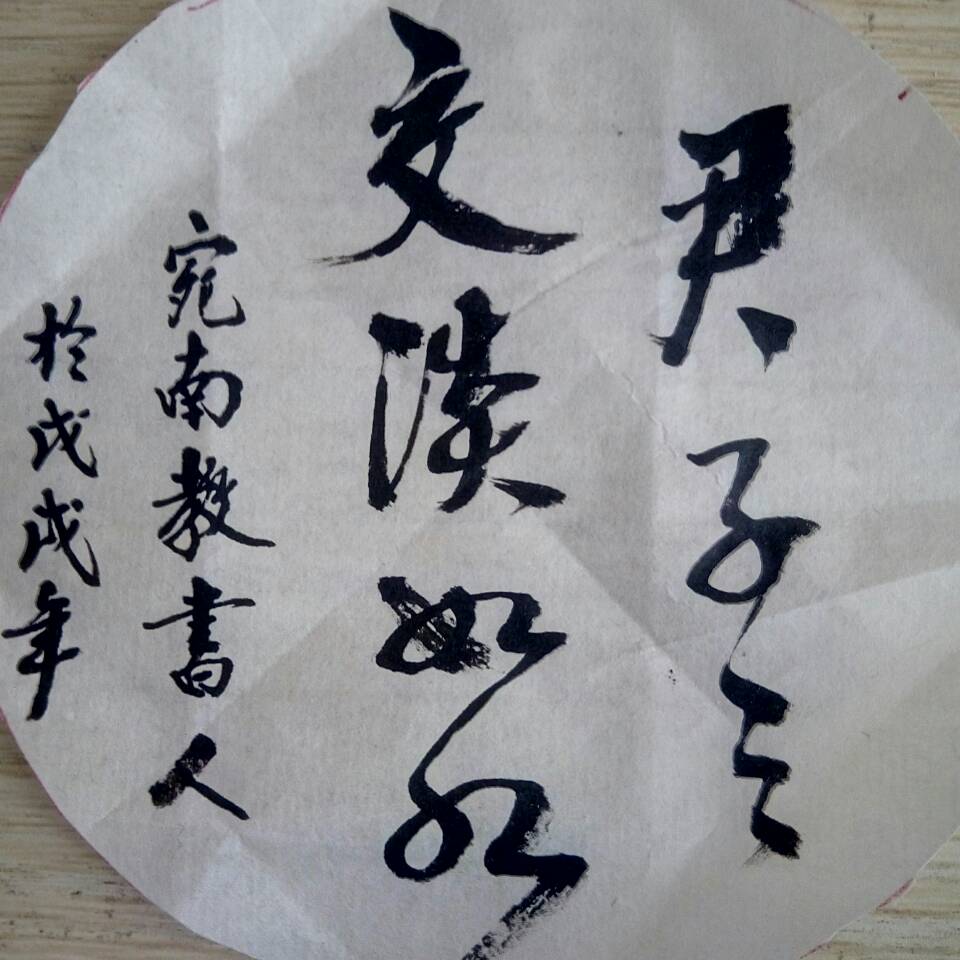 君子之
交淡如水
宛南教書人
於戊戌年